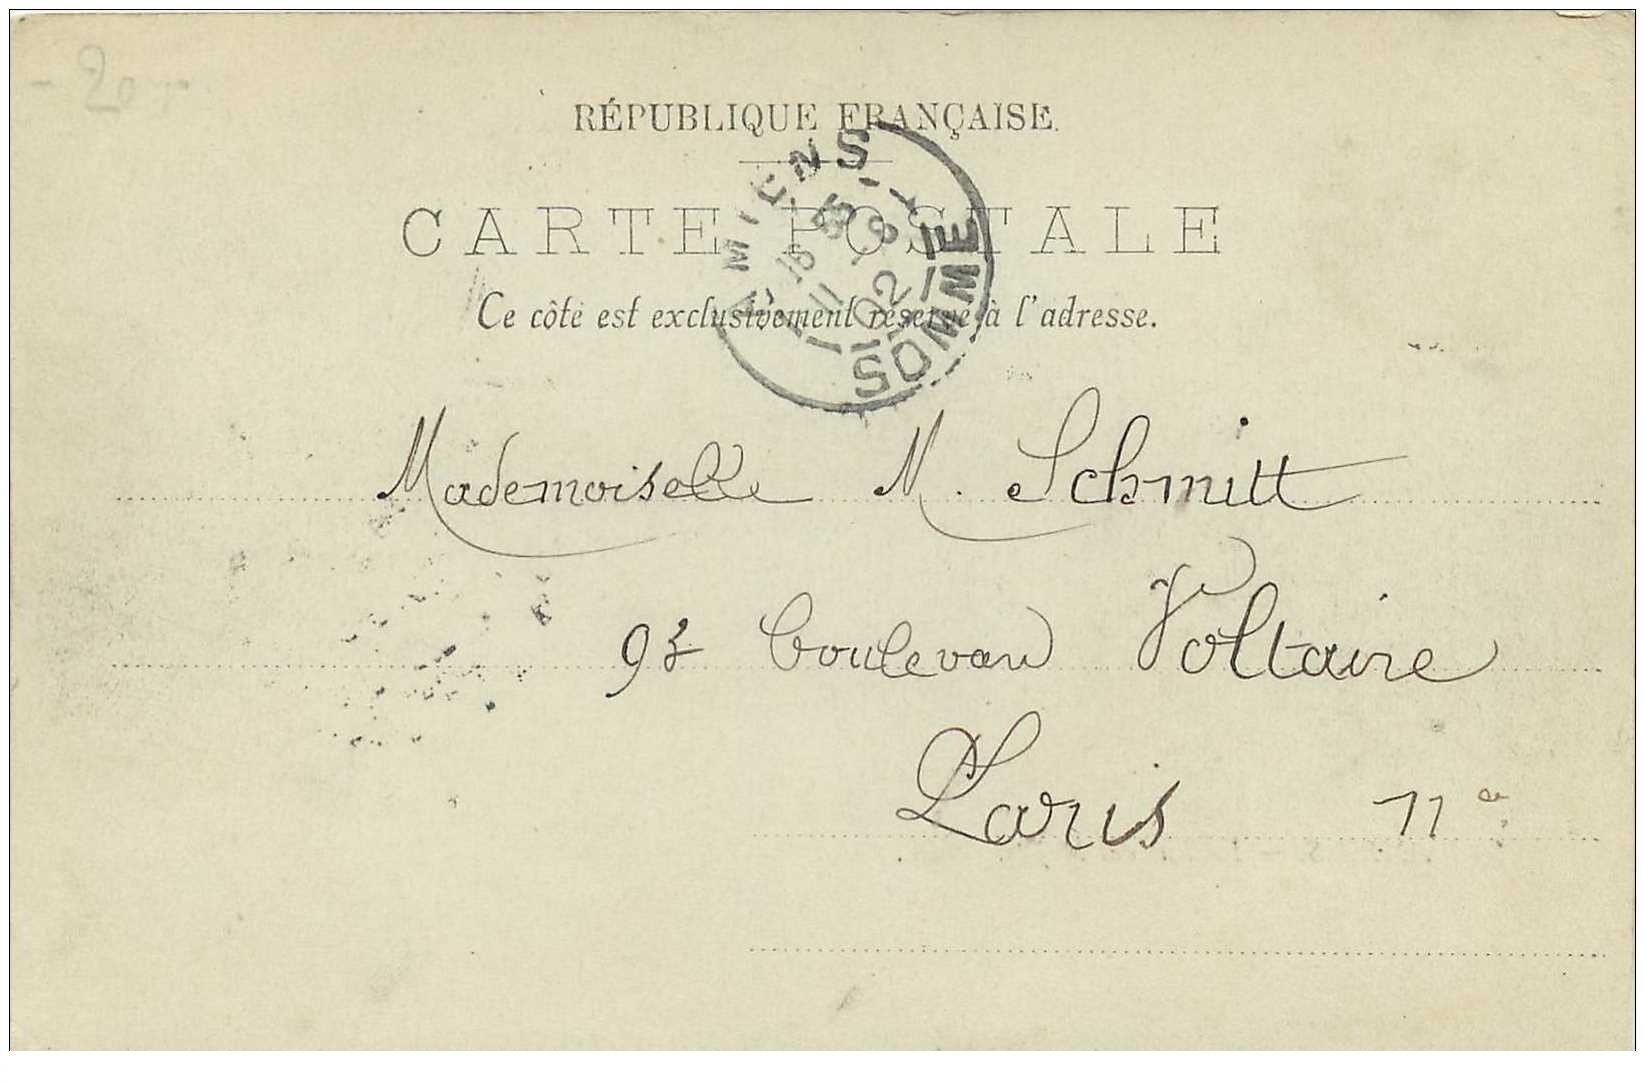 - 20 -
RÉPUBLIQUE FRANÇAISE
CARTE POSTALE
Ce côté est exclusivement réservé à l'adresse.
AMIENS
18 35
11 - 8
02
SOMME
Mademoiselle M. Schmitt
93 boulevard Voltaire
Paris 11e